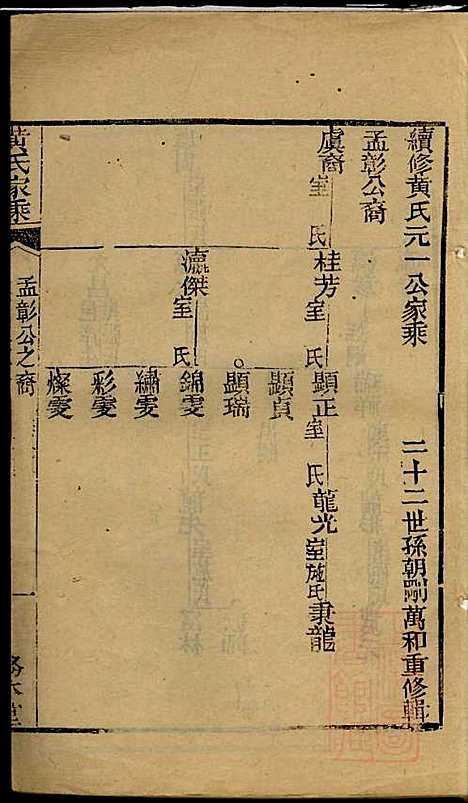 續修黃氏元一公家乘　二十二世孫朝剛萬和重修輯
孟彰公裔
虞裔 室 氏 桂芳 室 氏 顯正 室 氏 龍光 室施氏 秉龍
顯貞
顯瑞
瀛傑 室 氏 錦雯
繡雯
彩雯
燦雯
黃氏家乘 孟彰公之裔 一